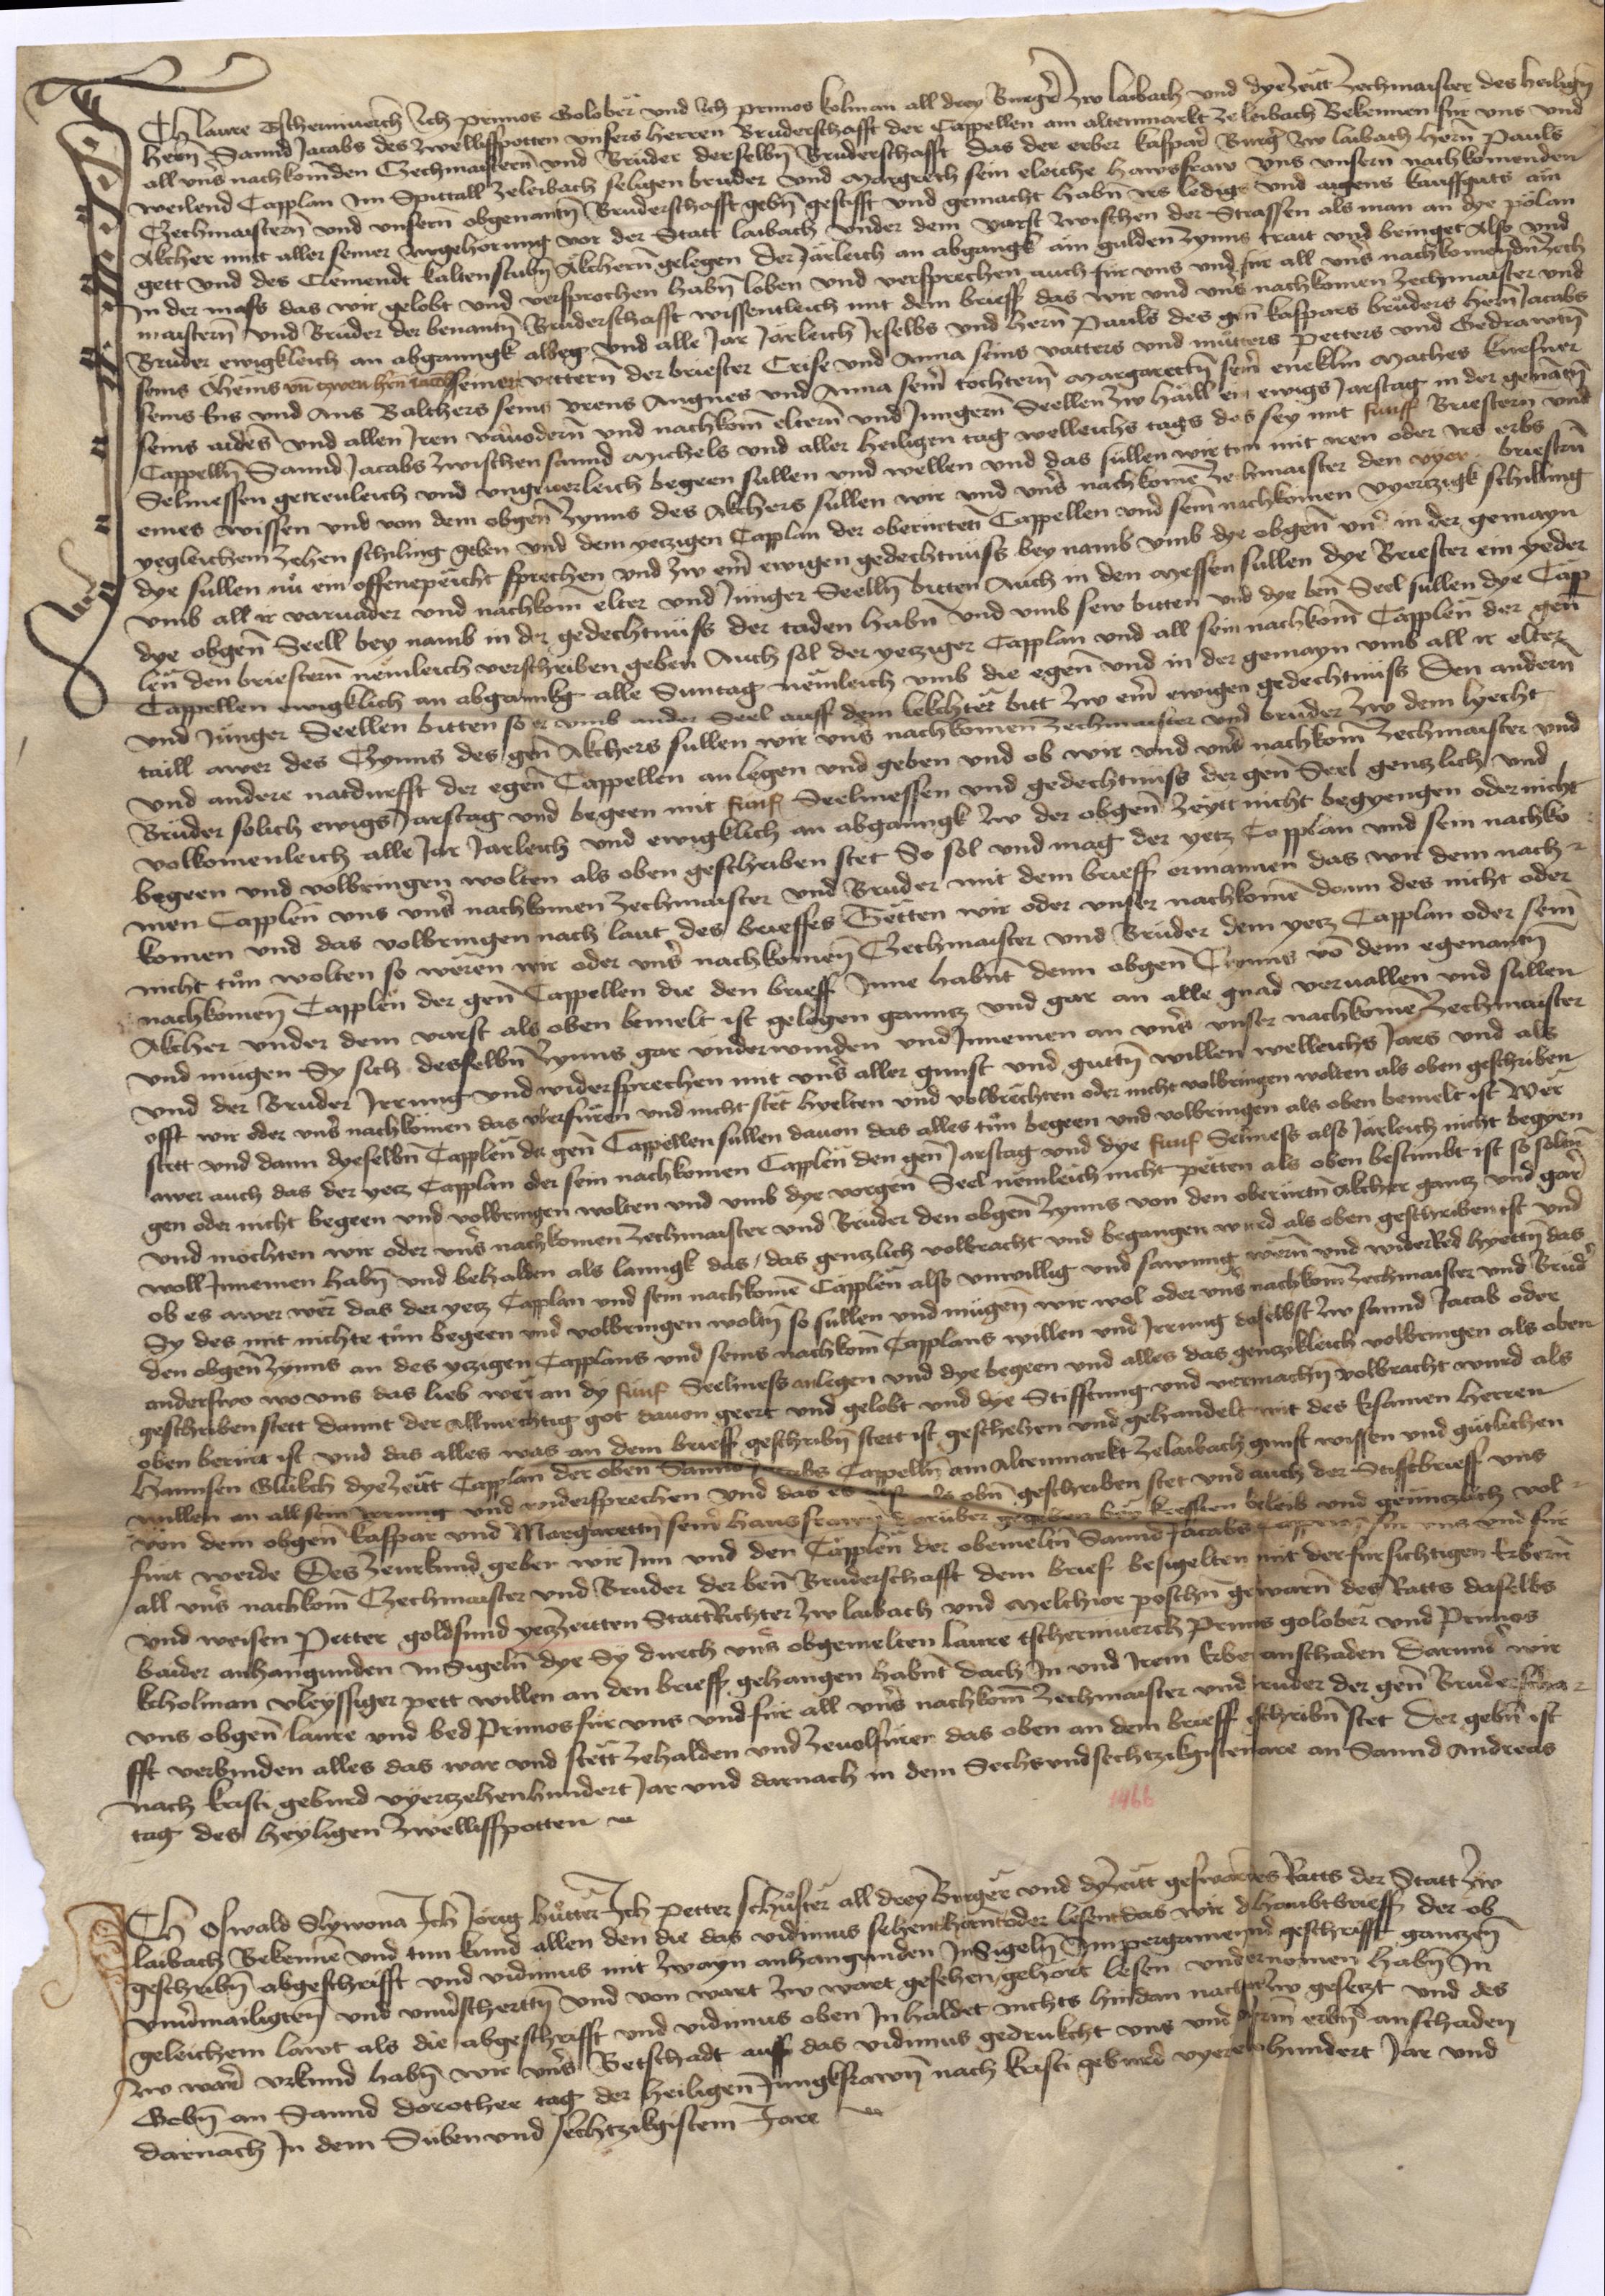 Ich laure Tscherniuerch Ich primos Golober und Ich primos kolman all drey Burgr̄ zw laibach und dyezeitt zechmaister des heilign̄
hern̄ Sannd Jacobs des zwelliffpotten unsers herren Bruderschafft der Cappellen am altenmarkt ze leibach Bekennen für uns und
all uns̄ nachkomden Czechmaistern̄ und Brüder derselbn̄ Bruderschafft das der erber kaspar̄ Burḡ zw laibach hern̄ Pauls
weilend Capplan im Spittall zeleibach seligen bruder und Margreth sein eleiche hawsfraw uns unsern̄ nachkomenden
Czechmaistern̄ und unsern̄ obgenantn̄ Bruderschafft gebn̄ gestifft und gemacht habn̄ irs ledigs und aigens kauffguts ain
Akcher mitt aller seiner zugehorung vor der Statt laibach under dem varst zwischen der Strassen als man an dye pölan
gett und des Clemendt kaltenstubn̄ Äkchern̄ gelegen der Järleich an abgangk ain gulden zynns trait und bringet Also und
In der mass das wir gelobt und versprochen habn̄ loben und versprechen auch für uns und für all uns̄ nachkomendn̄ zech
maistern̄ und Brüder der benantn̄ Bruderschafft wissentleich mit dem brieff das wir und uns̄ nachkomen zechmaister und
Bruder ewigkleich an abganngk albeg und alle Jar Järleich Irselbs und hern̄ Pauls des gn̄ kaspars brüders hern̄ Jacobs
seins Öhems un̄ tzwen hn̄ Jacob seiner vettern̄ der briester Crise und Anna seins vatters und mütters Petters und Gedrawtn̄
seins Ens und Ans Balthers seins Urens Angnes und Anna sein̄ tochtern̄ Margaretn̄ sein̄ eneklin Maches kuefner
seins aides̄ und allen Iren varuodern̄ und nachkom̄ eltern̄ und Jungern̄ Seellen zw haill ein ewigs Jarstag in der genātn̄
Cappelln̄ Sannd Jacobs zwischen sannd Michels und aller heiligen tag welleichs tags das sey mit fünff Briestern und
Selmessen getreuleich und ungeuerleich begeen sullen und wellen und das sullen wir tun mit iren oder irs erbs
eines wissen und von dem obgen̄ zynns des Akchers sullen wir und uns̄ nachkomē zechmaister den vyer briestn̄
yegleichem zehen schiling geben und dem yetzigen Capplan der oberürten̄ Cappellen und sein̄ nachkomen vyertzigk schilling
dye sullen nů ein offenepeicht sprechen und zw eim̄ ewigen gedechtnüss bey namb umb dye obgen̄ un̄ in der gemayn
umb all ir varuader und nachkom̄ elter und Jünger Seelln̄ bitten Auch in den messen sullen dye Briester ein yeder
dye obgen̄ Seell bey namb in der gedechtnüss der taden habn̄ und umb sew bitten und dye ben̄ Seel sullen dye Capp
len̄ den briestern̄ nemleich verschriben geben Auch sol der yetziger Capplan und all sein nachkom̄ Capplen̄ der gen̄
Cappellen ewigklich an abganngk alle Suntag nemleich umb die egen̄ und in der gemayn umb all ir elter
und Jünger Seellen bitten so er umb ander Seel auff dem lekchter bitt zw eim̄ ewigen gedechtnüss Den andern̄
taill awer des Czynns des gen̄ Akchers sullen wir uns̄ nachkomen̄ zechmaister und bruder zw dem lyecht
und andere notdurfft der egen̄ Cappellen anlegen und geben und ob wir und uns̄ nachkom̄ zechmaister und
Brüder solich ewigs Jarstag und begeen mit fünf Seelmessen und gedechtnüss der gen̄ Seel gentzlich und
volkomenleich alle Jar Jarleich und ewigklich an abganngk zw der obgen̄ zeytt nicht begyengen oder nicht
begeen und volbringen wolten als oben geschriben stet So sol und mag der yetz Capplan und sein nachko
men Capplen̄ uns uns̄ nachkomen zechmaister und Bruder mit dem brieff ermannen das wir dem nach
komen und das volbringen nach laut des brieffes Tetten wir oder unser nachkomē dann des nicht oder
nicht tůn wolten so weren wir oder uns̄ nachkomen̄ Czechmaister und Brüder dem yetz Capplan oder sein̄
nachkomen̄ Capplen̄ der gen̄ Cappellen die den brieff Inne habn̄t denn obgen̄ Czynns vō dem egenantn̄
Akcher under dem varst als oben bemelt ist gelegen ganntz und gar an alle gnad veruallen und sullen
und mügen Sy sich desselbn̄ zynns gar underwinden und Innemen an uns̄ unser nachkomē zechmaister
und der Bruder Irrung und widersprechen mit uns̄ aller gunst und guttn̄ willen welleichs Jars und als
offt wir oder uns̄ nachkömen das uberfüren und nicht stet hyelten und volbrechten oder nicht volbringen wolten als oben geschriben
stett und dann dyeselbn̄ Capplen̄ der gen̄ Cappellen sullen dauon das alles tůn begeen und volbringen als oben bemelt ist Wer
awer auch das der yetz Capplan oder sein nachkomen Caplen̄ den gen̄ Jarstag und dye fünf Selmess also Järleich nicht begyen
gen oder nicht begeen und volbringen wolten und umb dye vorgen̄ Seel nemleich nicht petten als oben bestimbt ist so soltn̄
und mochten wir oder uns̄ nachkomen zechmaister und Bruder den obgen̄ zynns von den oberürtn̄ akcher gantz und gar̄
woll Innemen habn̄ und behalden als lanngk das / das gentzlich volbracht und begangen wurd als oben geschriben ist und
ob es awer wer das der yetz Capplan und sein nachkomē Capplen̄ also unwillig und sawmig wern̄ und widerRed hyettn̄ das
Sy des mit nichte tůn begeen und volbringen woltn̄ so sullen und mügen̄ wir wol oder uns̄ nachkom̄ zechmaister und Brüd̄
den obgen̄ zynns an des yczigen Capplans und seins nachkom̄ Capplans willen und Irrung daselbst zw sannd Jacob oder
anderswo wo uns das lieb wer an dy fünf Seelmess anlegen und dye begeen und alles das gentzkleich volbringen als oben
geschriben stett damit der Allmechtig got dauon geert und gelobt und dye Stifftung und vermachn̄ volbracht wurd als
oben berürt ist und das alles was an dem brieff geschribn̄ stett ist geschehen und gehandelt mit des Ersamen herren
Hannsen Glubch dyezeitt Capplan der oben Sannd Jacobs Cappelln̄ am Altenmarkt zelaibach gunst wissen und gütlichen
willen an all sein Irrung und widersprechen und das es als obn̄ geschriben stet und auch der Stifftbrieff uns
von dem obgen̄ kaspar und Margarettn̄ sein̄ hausfrawn darüber gegeben bey krefften beleib und gentzlich vol
fürt werde Des zeurkund geben wir Im und den Capplen̄ der obemeltn̄ Sannd Jacobs Cappelln̄ für uns und für
all uns̄ nachkom̄ Czechmaister und Bruder der ben̄ Bruderschafft dem brief besigelten mit der fursichtigen Erbern̄
und weisen Petter goldsmid yetzzeitten StattRichter zw laibach und Melchior poschn̄ geswarn̄ des Ratts daselbs
baider anhangunden Insigeln̄ dye Sy durch uns̄ obgemelten laure tscherniuerch Primos golober und Primos
kholman vleyssiger pett willen an den brieff gehangen habn̄t dach In und Irem Erben anschaden Darund̄ wir
uns obgen̄ laure und bed Primos für uns und für all uns̄ nachkom̄ zechmaister und Bruder der gen̄ Bruderscha
fft verbinden alles das war und stett zehalden und zeuolfürer das oben an dem brieff gschribn̄ stet Der gebn̄ ist
nach kristi geburd vyertzehenhundert Jar und darnach in dem Sechsundsechtzikgisten Jare an Sannd Andreas
tag des heyligen zwelliffpotten
1466
Ich Oswald Slywona Ich Jörig hutter Ich Petter schuster all drey Burger und dyezeitt geswaren des Ratts der Statt zw
laibach Bekennē und tun kund allen den die das vidimus sehent horent oder lesent das wir d haubtbrieff der ob
geschribn̄ abgeschrifft und vidimus mit zwayn anhangunden Insigeln̄ Im pergamenn̄ geschrifft gantzen̄
unūmailigten̄ und unūschertn̄ und von wart zw wart gesehen gehort lesen undernomen habn̄ In
geleichem lawt als die abgeschrifft und vidimus oben Inhaldet nichts hindan nach zw gesetzt und des
zw war̄ urkund habn̄ wir uns̄ Betschadt auff das vidimus gedrukcht uns und unsern̄ erbn̄ anschaden
Gebn̄ an Sannd Dorothee tag der heiligen Jungkfrawn̄ nach kristi geburd vyertzehenhundert Jar und
darnach In dem Sibenundsechtzikgistem Jare